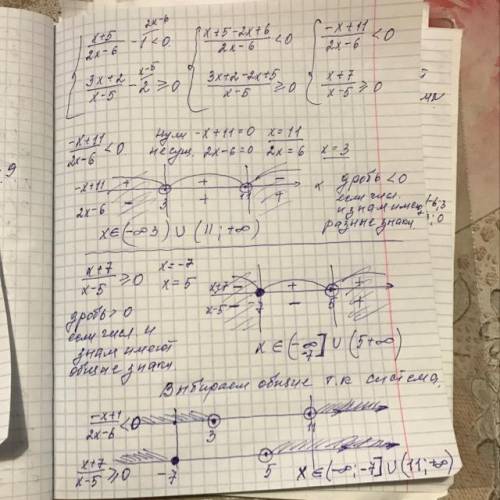 2x-6
{ (x+5)/(2x-6) - 1 < 0 { (x+5-2x+6)/(2x-6) < 0 { (-x+11)/(2x-6) < 0
x-5
(3x+2)/(x-5) - 2 ≥ 0 (3x+2-2x+5)/(x-5) ≥ 0 (x+7)/(x-5) ≥ 0
(-x+11)/(2x-6) < 0 нули -x+11=0 x=11
не сущ. 2x-6=0 2x=6 x=3
-x+11 + + - x
2x-6 - 3 + 11 +
дробь <0
если числ.
и знам имеют
разные знаки
x∈(-∞ 3) ∪ (11; +∞)
(x+7)/(x-5) ≥ 0 x=-7
x=5
дробь > 0
если числ. и
знам имеют
общие знаки
x+7 - + +
x-5 - -7 - 5 +
x∈(-∞ -7] ∪ (5 +∞)
Выбираем общие т.к система.
(-x+11)/(2x-6) < 0 3 11
(x+7)/(x-5) ≥ 0 -7 5
x∈(-∞; -7] ∪ (11; +∞)